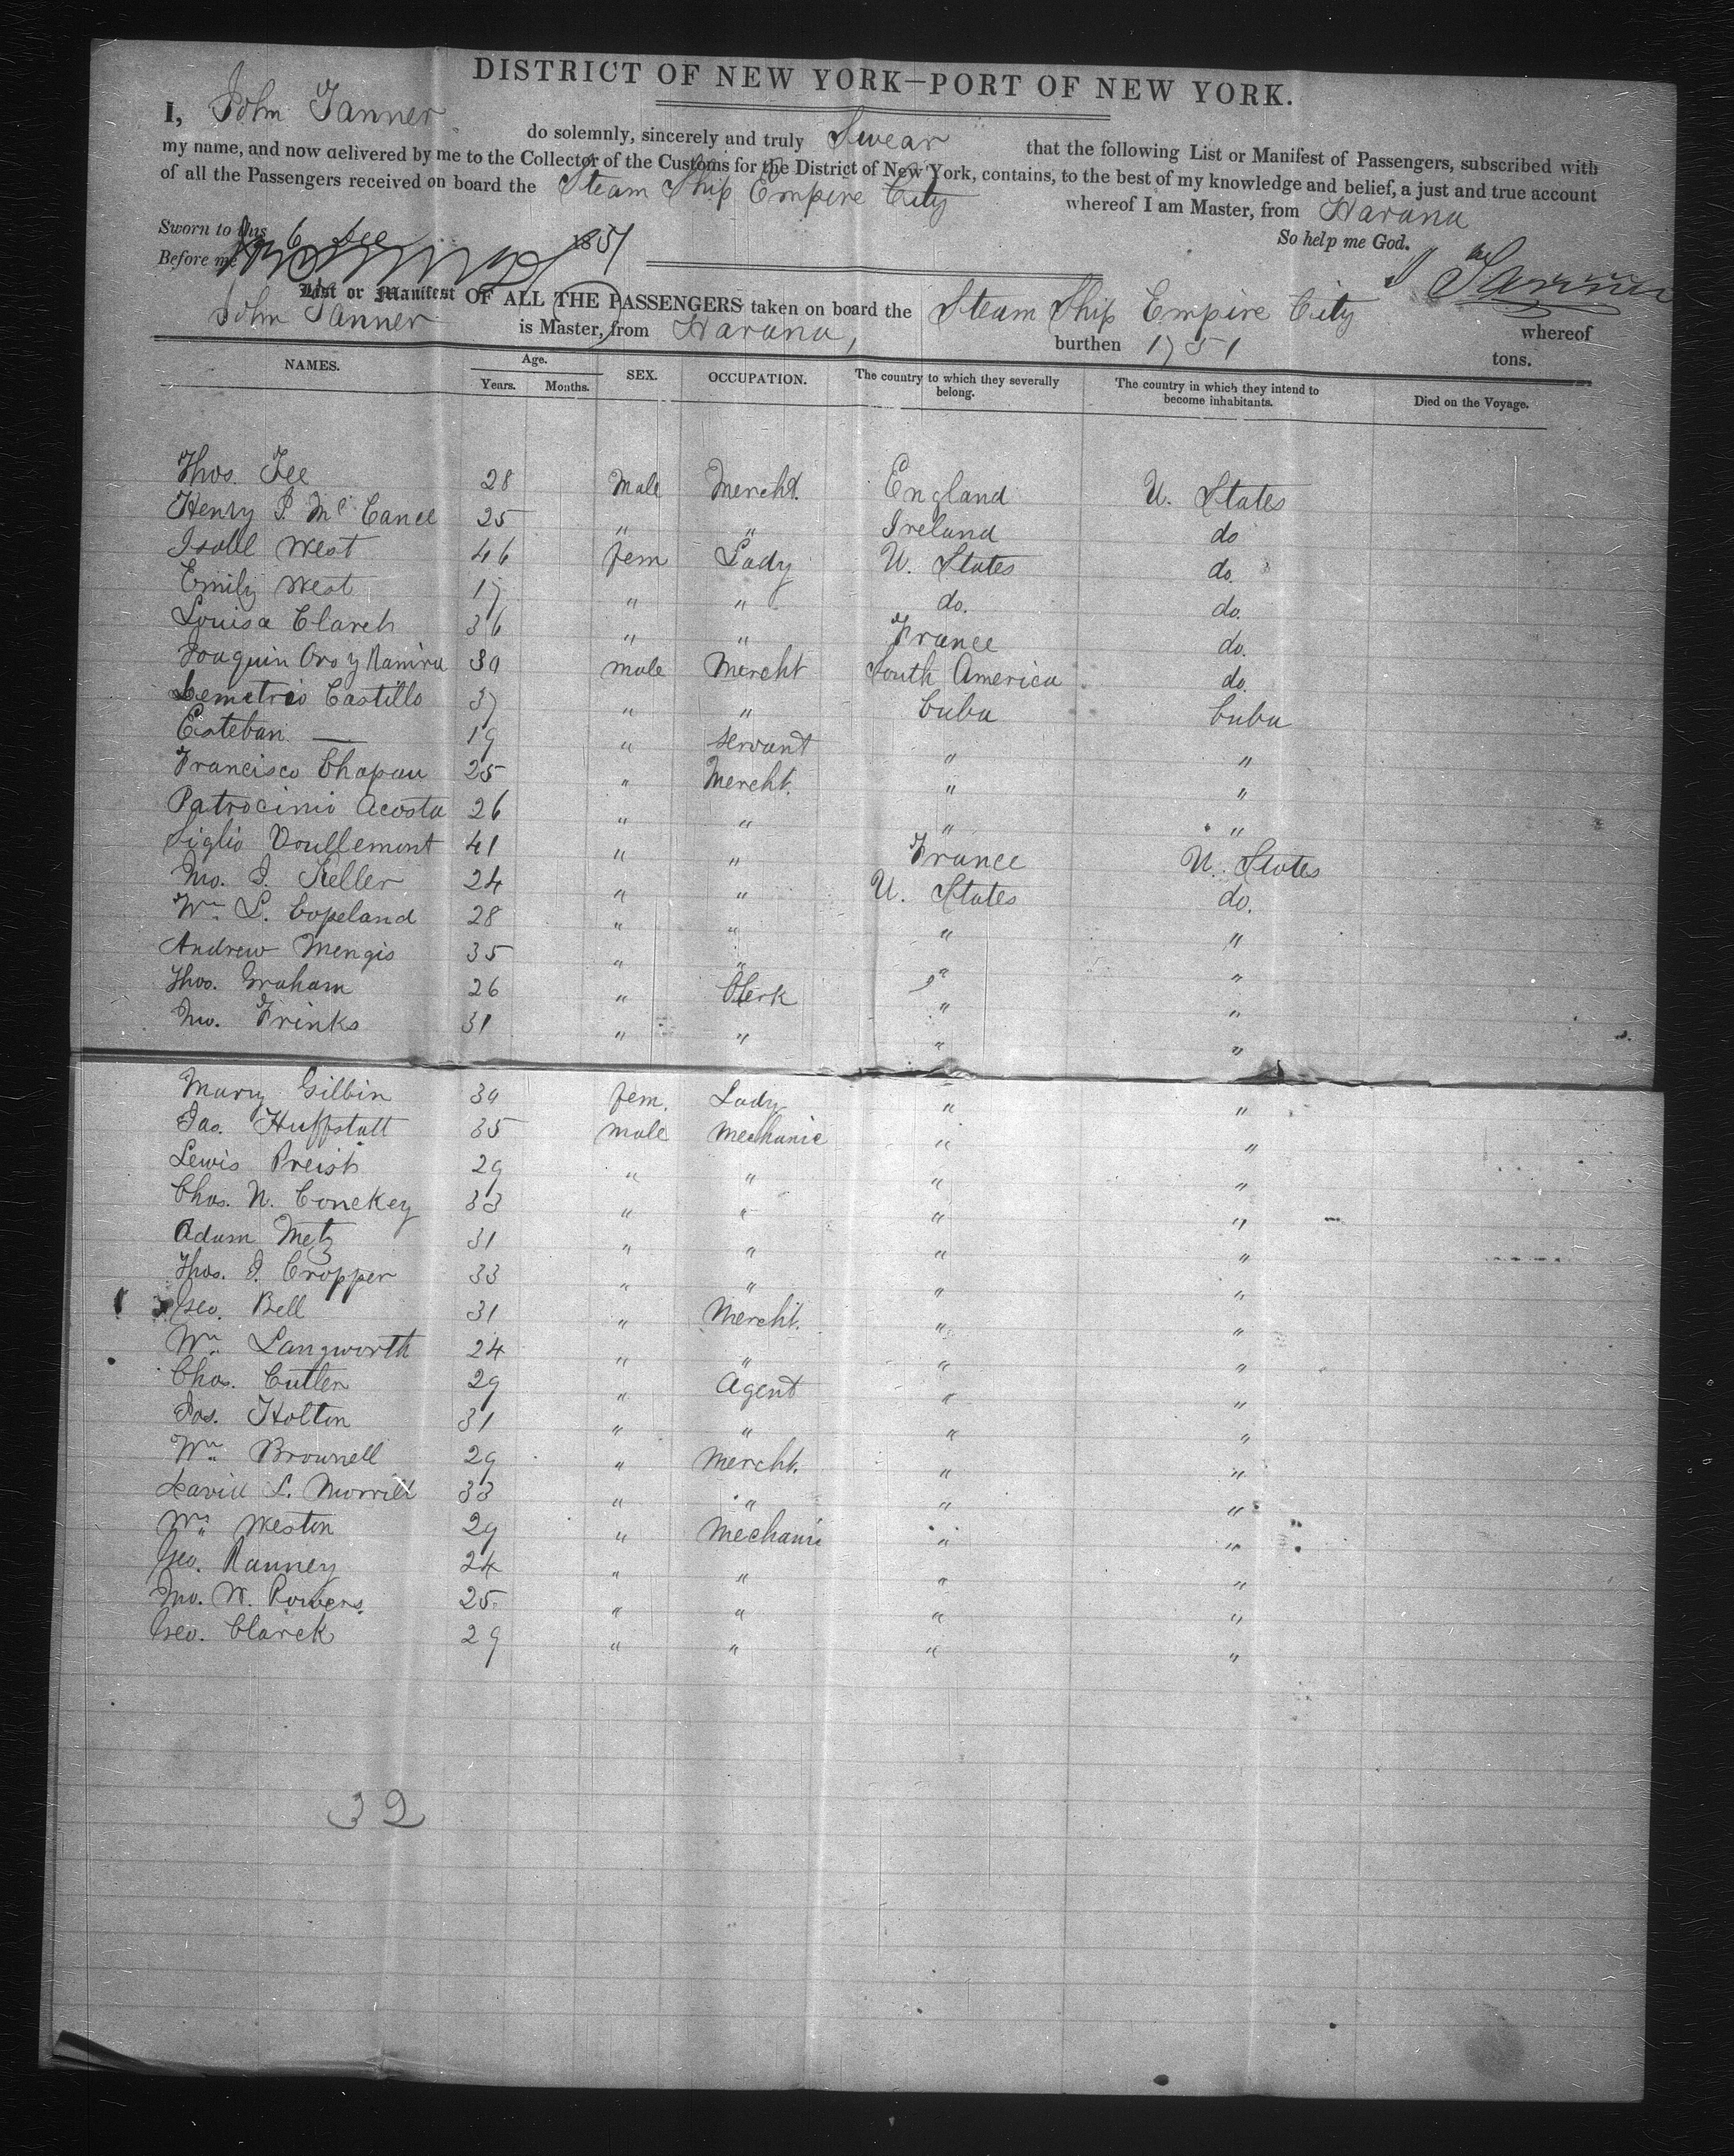 DISTRICT OF NEW YORK—PORT OF NEW YORK.
I, John Tanner do solemnly, sincerely and truly Swear that the following List or Manifest of Passengers, subscribed with
my name, and now delivered by me to the Collector of the Customs for the District of New York, contains, to the best of my knowledge and belief, a just and true account
of all the Passengers received on board the Steam Ship Empire City whereof I am Master, from Havana
Sworn to this 6 Dec 1851 So help me God.
Before me J Tanner
List or Manifest OF ALL THE PASSENGERS taken on board the Steam Ship Empire City whereof
John Tanner is Master, from Havana, burthen 1751 tons.
NAMES. Age. Years. Months. SEX. OCCUPATION. The country to which they severally belong. The country in which they intend to become inhabitants. Died on the Voyage.
Thos. Fee 28 Male Mercht. England U. States
Henry P. McCance 25 " " Ireland do
Isabel West 46 fem Lady U. States do.
Emily West 17 " " do. do.
Louisa Clarch 36 " " France do.
Joaquin Oro y Ramira 30 male Mercht South America do.
Demetrio Castillo 37 " " Cuba Cuba
Esteban — 19 " servant " "
Francisco Chapau 25 " Mercht. " "
Patrocinio Acosta 26 " " " "
Siglio Voullemont 41 " " France U. States
Jno. J. Keller 24 " " U. States do.
Wm L. Copeland 28 " " " "
Andrew Mengis 35 " " " "
Thos. Graham 26 " Clerk " "
Jno. Frinks 31 " " " "
Mary Gilbin 30 fem. Lady " "
Jas. Huffstatt 35 male mechanic " "
Lewis Preish 29 " " " "
Chas. N. Conckey 33 " " " "
Adam Metz 31 " " " "
Thos. J. Cropper 33 " " " "
Geo. Bell 31 " Mercht. " "
Wm Langworth 24 " " " "
Chas. Cutler 29 " Agent " "
Jos. Holton 31 " " " "
Wm Brownell 29 " Mercht. " "
David L. Morrill 33 " " " "
Wm Weston 29 " Mechanic " "
Geo. Ranney 24 " " " "
Jno. W. Powers. 25 " " " "
Geo. Clarck 29 " " " "
32